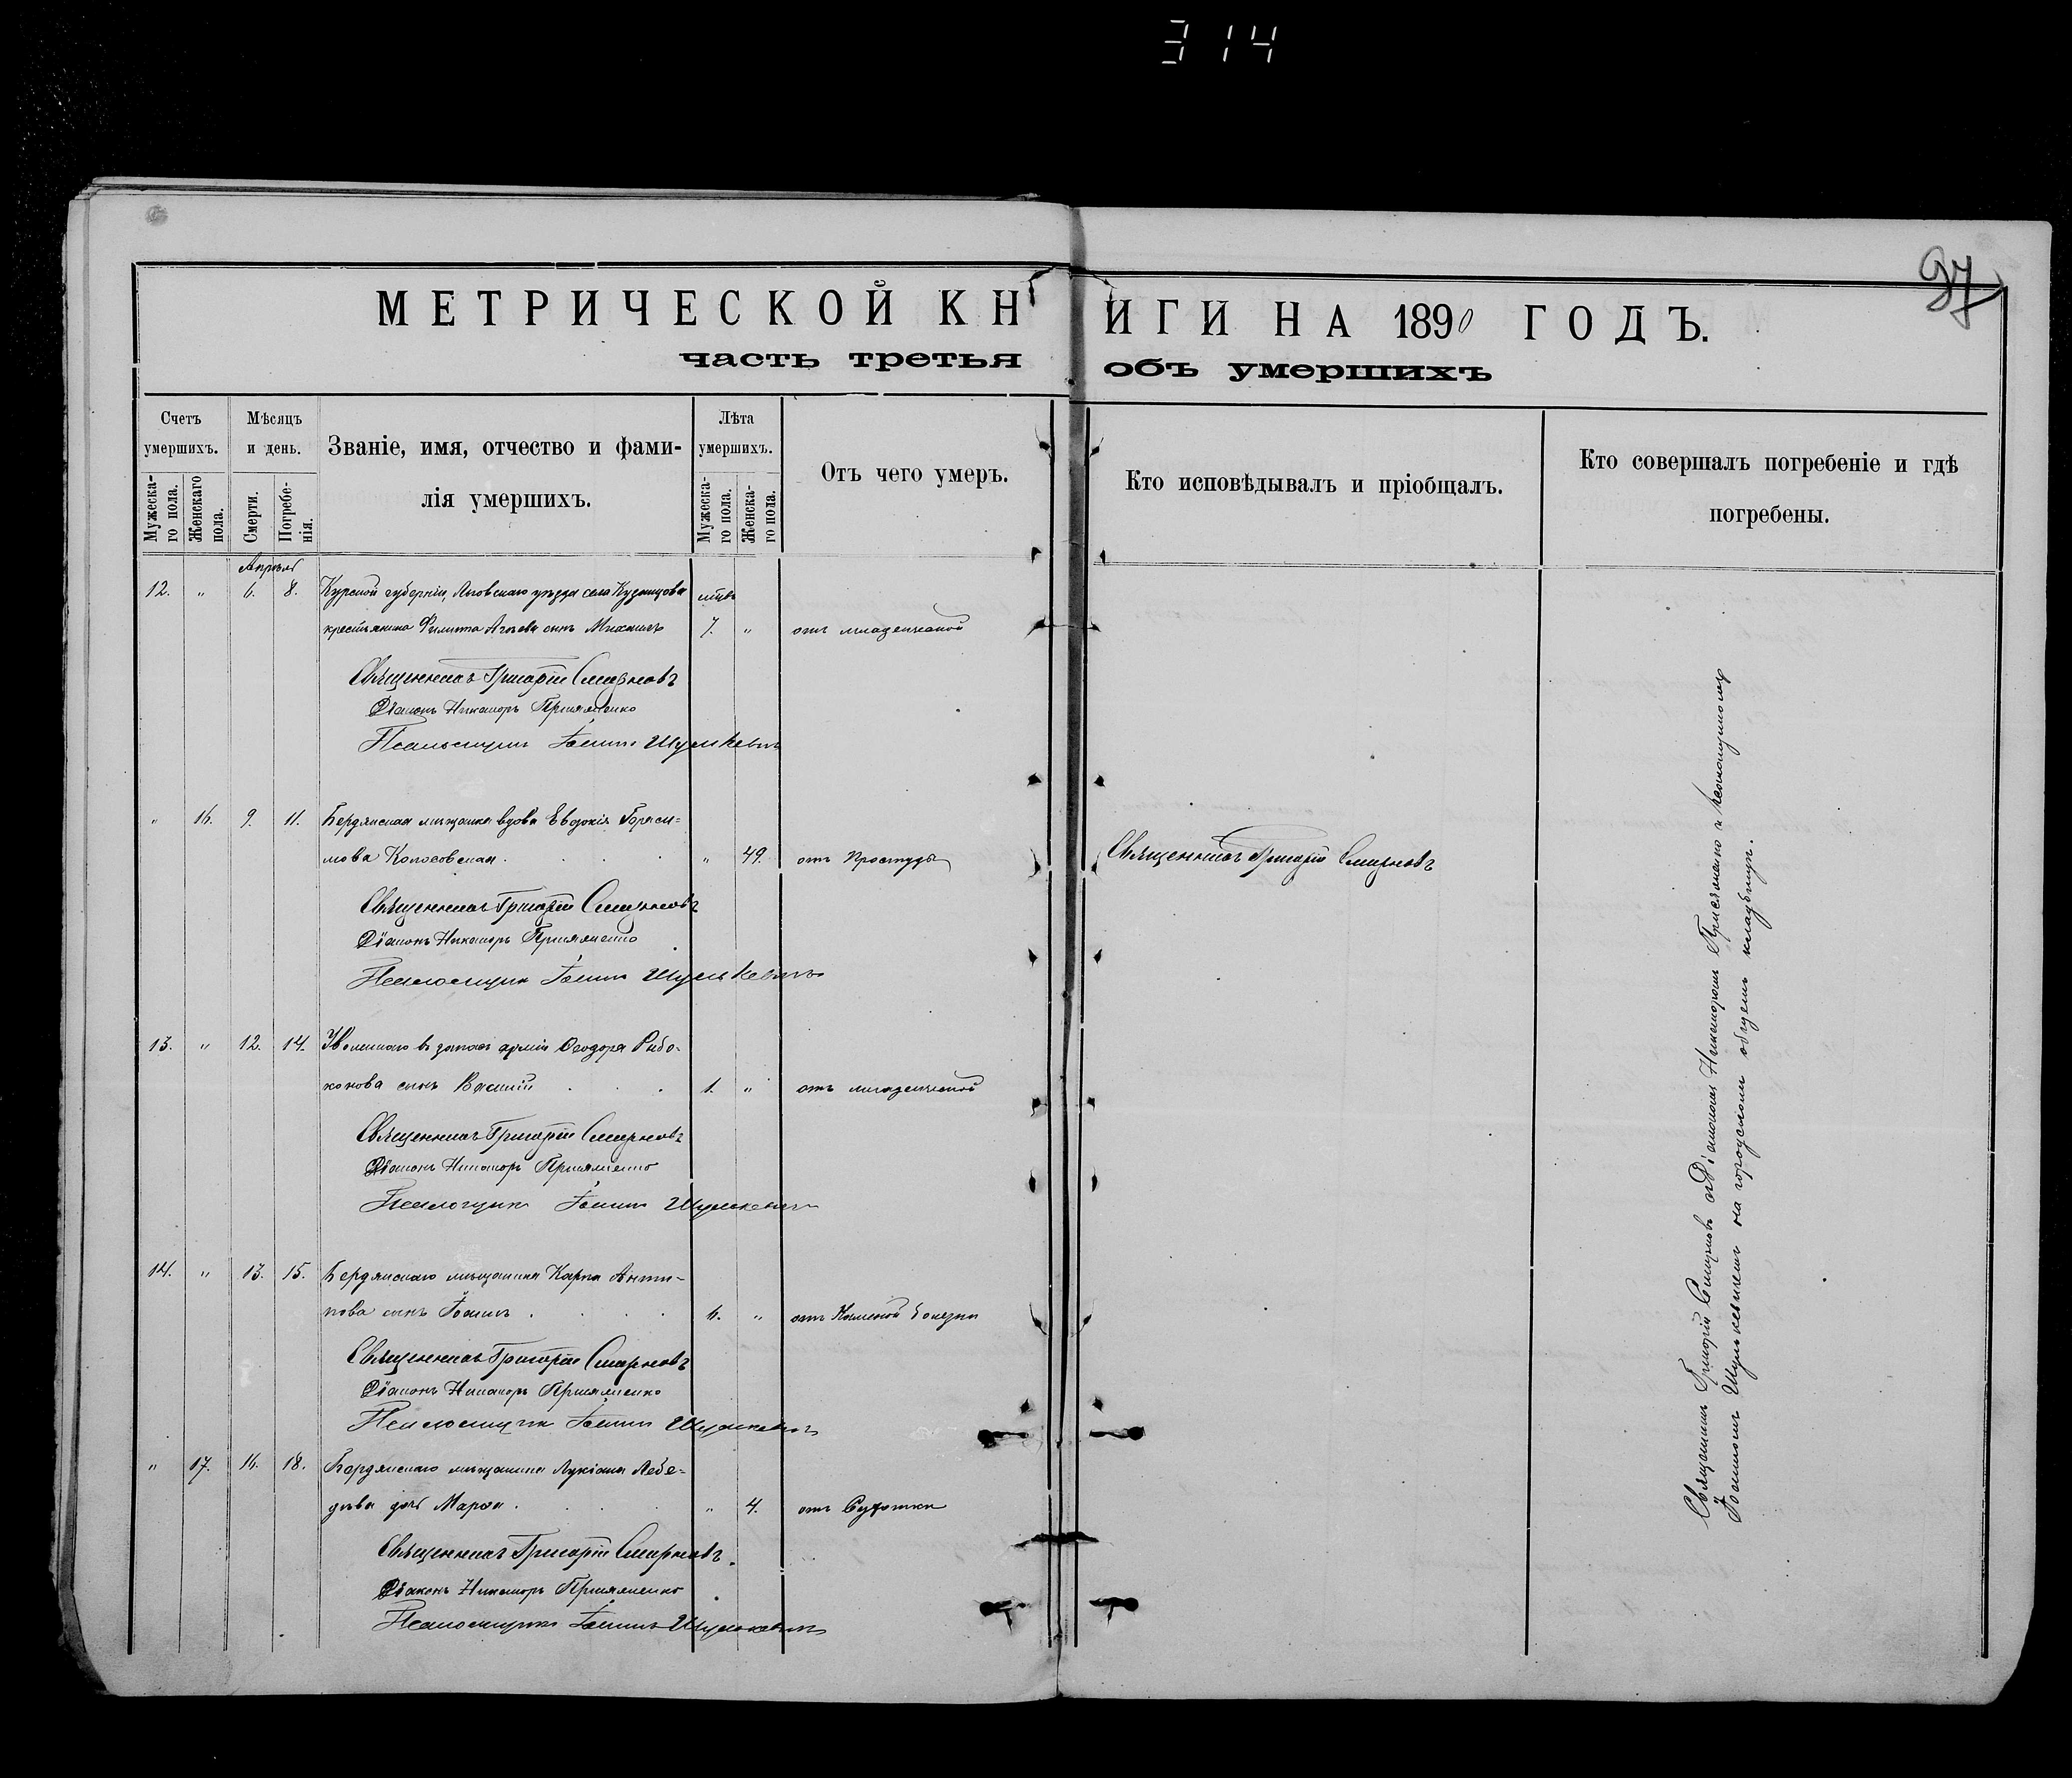 314
97
МЕТРИЧЕСКОЙ КНИГИ НА 1890 ГОДЪ.
часть третья объ умершихъ
Счетъ умершихъ.
Мужеска-
го пола.
Женскаго
пола.
Мѣсяцъ и день.
Смерти.
Погребе-
нія.
Званіе, имя, отчество и фами-
лія умершихъ.
Лѣта умершихъ.
Мужеска-
го пола.
Женска-
го пола.
Отъ чего умеръ.
Кто исповѣдывалъ и пріобщалъ.
Кто совершалъ погребеніе и гдѣ
погребены.
Апрѣль
12. „ 6. 8. Курской губерніи, Льговскаго уѣзда села
крестьянина Филиппа сынъ Михаилъ 7. „ отъ младенческой
Священникъ Григорій Смирновъ
Діаконъ Никаноръ Присяженко
Псаломщикъ Іоаннъ Шулькевичъ
„ 16. 9. 11. Бердянская мѣщанка вдова Евдокія Гераси-
мова Колосовская. „ 49. отъ простуды Священникъ Григорій Смирновъ
Священникъ Григорій Смирновъ
Діаконъ Никаноръ Присяженко
Псаломщикъ Іоаннъ Шулькевичъ
13. „ 12. 14. Уволеннаго въ запасъ арміи Ѳеодора Рыбо-
конова сынъ Василій 1. „ отъ младенческой
Священникъ Григорій Смирновъ
Діаконъ Никаноръ Присяженко
Псаломщикъ Іоаннъ Шулькевичъ
14. „ 13. 15. Бердянскаго мѣщанина Карпа Анти-
пова сынъ Іоаннъ. 6. „ отъ Каменой болѣзни
Священникъ Григорій Смирновъ
Діаконъ Никаноръ Присяженко
Псаломщикъ Іоаннъ Шулькевичъ
„ 17. 16. 18. Бердянскаго мѣщанина Лукіана Лебе-
дѣва дочь Марѳа. „ 4. отъ Сухотки
Священникъ Григорій Смирновъ.
Діаконъ Никаноръ Присяженко
Псаломщикъ Іоаннъ Шулькевичъ
Священникъ Григорій Смирновъ съ Діакономъ Никаноромъ Присяженко и Псаломщикомъ
Іоанномъ Шулькевичемъ на городскомъ общемъ кладбищѣ.